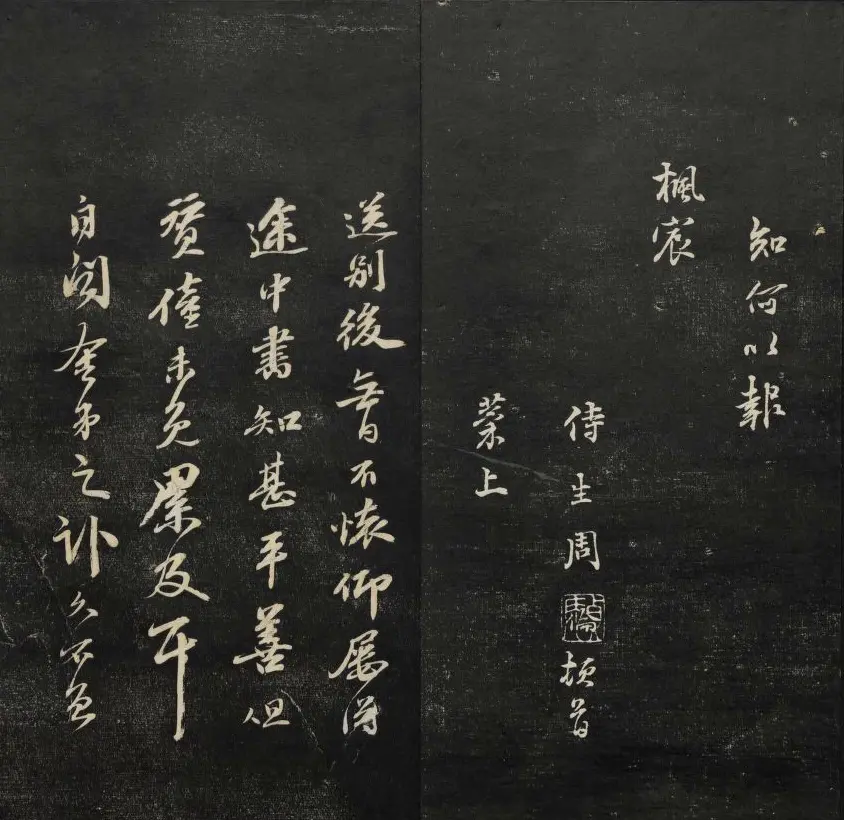 知何以報
楓宸
侍生周頓首
榮上
送別後無日不懷仰屢得
途中書知甚平善但
未免累及耳
自聞舍弟之訃久不